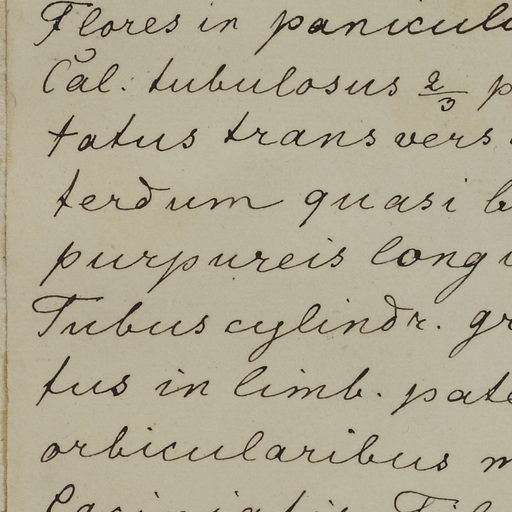 Flores in panicul
Cal. tubulosus 2/3 p
tatus transvers
terdum quasi b
purpureis long
Tubus cylindr. gr
tus in limb. pate
orbicularibus m